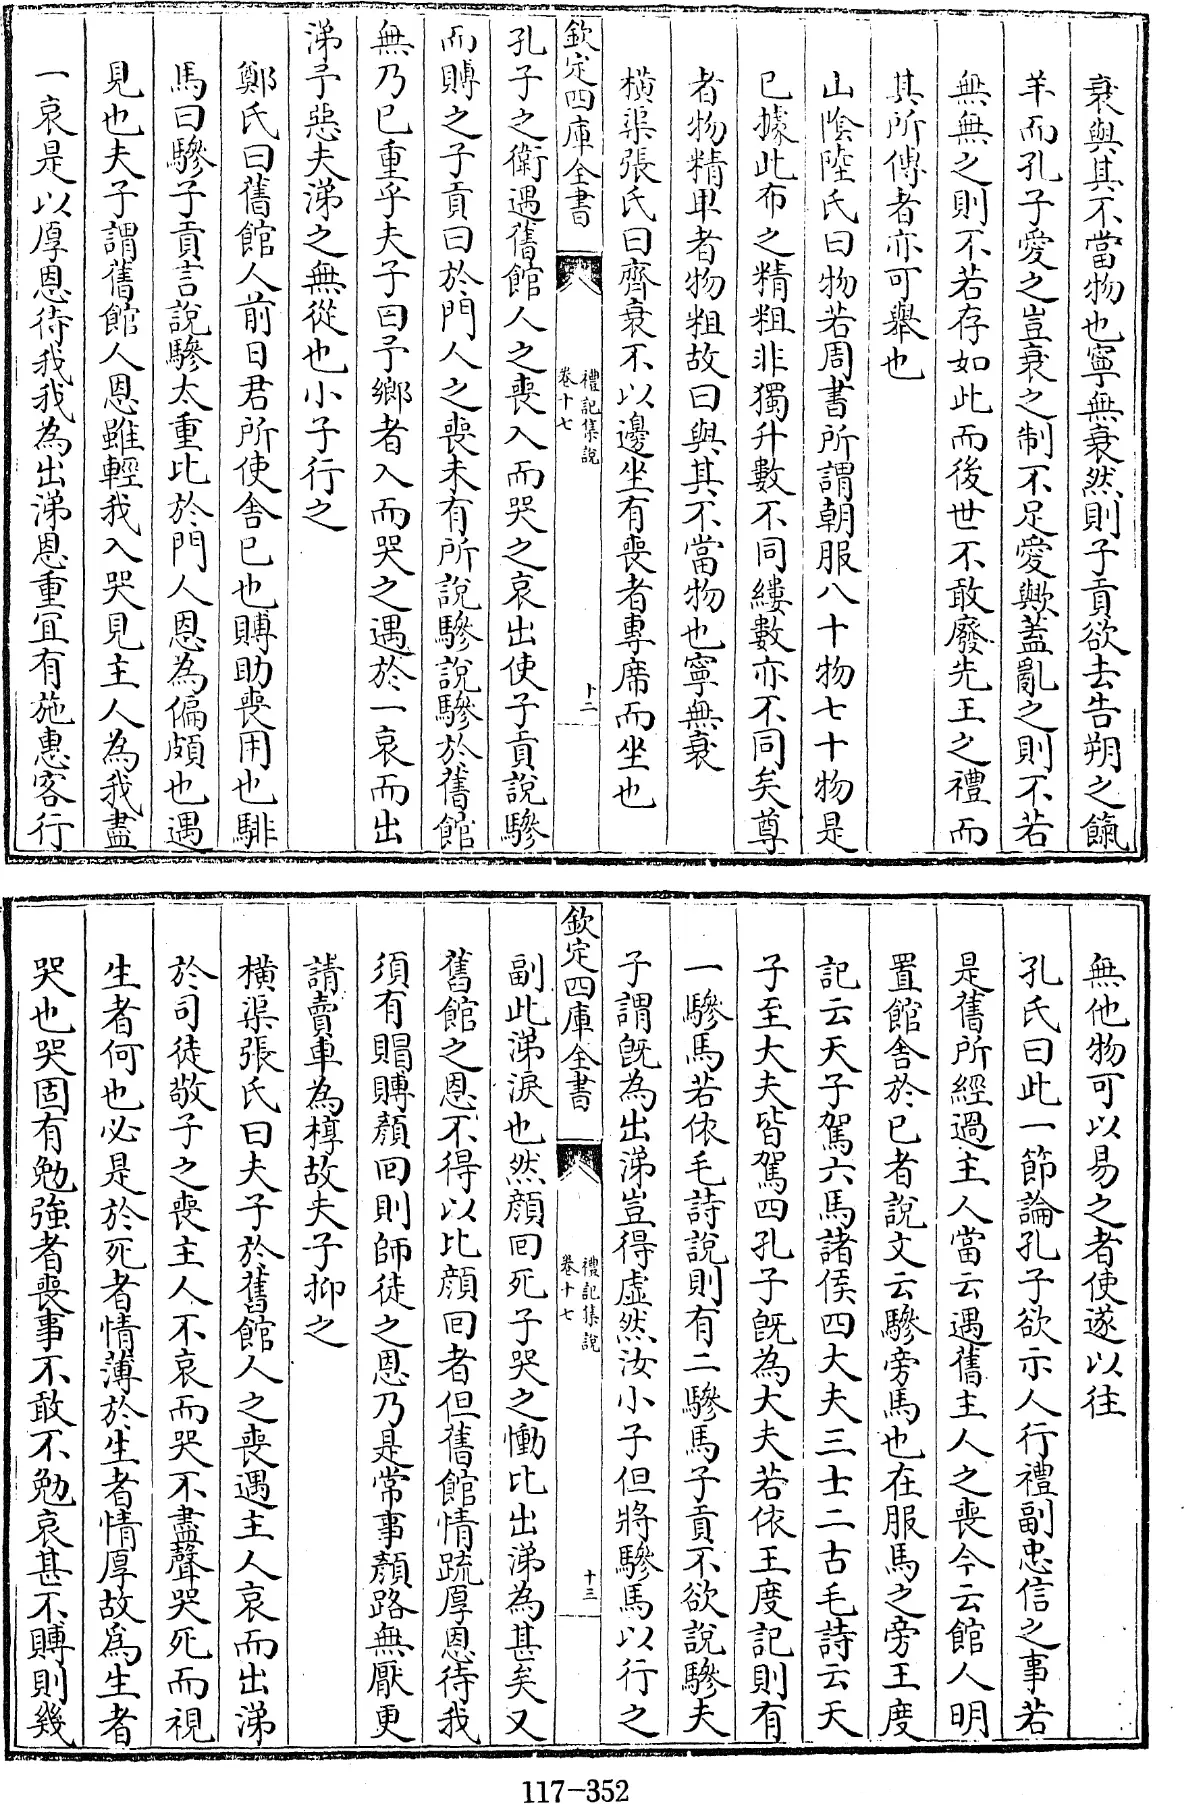 衰與其不當物也寧無衰然則子貢欲去告朔之餼
羊而孔子愛之豈衰之制不足愛歟蓋亂之則不若
無無之則不若存如此而後世不敢廢先王之禮而
其所傳者亦可舉也
山陰陸氏曰物若周書所謂朝服八十物七十物是
已據此布之精粗非獨升數不同縷數亦不同矣尊
者物精卑者物粗故曰與其不當物也寧無衰
橫渠張氏曰齊衰不以邊坐有喪者專席而坐也
欽定四庫全書
禮記集說
卷十七
十二
孔子之衛遇舊館人之喪入而哭之哀出使子貢說驂
而賻之子貢曰於門人之喪未有所說驂說驂於舊館
無乃已重乎夫子曰予鄉者入而哭之遇於一哀而出
涕予惡夫涕之無從也小子行之
鄭氏曰舊館人前日君所使舍已也賻助喪用也騑
馬曰驂子貢言說驂太重比於門人恩為偏頗也遇
見也夫子謂舊館人恩雖輕我入哭見主人為我盡
一哀是以厚恩待我我為出涕恩重宜有施惠客行
無他物可以易之者使遂以往
孔氏曰此一節論孔子欲示人行禮副忠信之事若
是舊所經過主人當云遇舊主人之喪今云館人明
置館舍於已者說文云驂旁馬也在服馬之旁王度
記云天子駕六馬諸侯四大夫三士二古毛詩云天
子至大夫皆駕四孔子旣為大夫若依王度記則有
一驂馬若依毛詩說則有二驂馬子貢不欲說驂夫
子謂旣為出涕豈得虛然汝小子但將驂馬以行之
欽定四庫全書
禮記集說
卷十七
十三
副此涕淚也然顏回死子哭之慟比出涕為甚矣又
舊館之恩不得以比顏回者但舊館情疏厚恩待我
須有賵賻顏回則師徒之恩乃是常事顏路無厭更
請賣車為椁故夫子抑之
橫渠張氏曰夫子於舊館人之喪遇主人哀而出涕
於司徒敬子之喪主人不哀而哭不盡聲哭死而視
生者何也必是於死者情薄於生者情厚故爲生者
哭也哭固有勉強者喪事不敢不勉哀甚不賻則幾
117-352